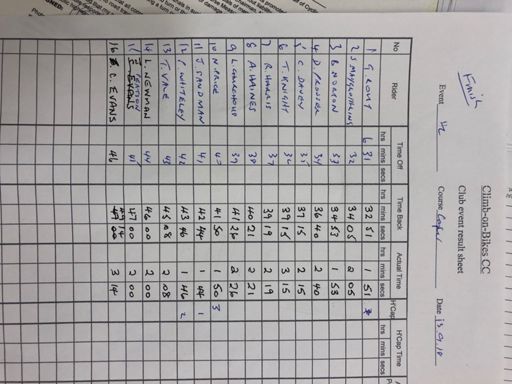 Climb-on-Bikes CC
Club event result sheet
Finish
Event Course Date 13.9.18
No Rider Time Off Time Back Actual Time H'Cap H'Cap Time
hrs mins secs hrs mins secs hrs mins secs hrs mins secs
1 G. 6 31 32 51 1 51
2 S 32 34 05 2 05
3 B. 33 34 53 1 53
4 D PROSSER 34 36 40 2 40
5 C. DAVEY 35 37 15 2 15
6 T. KNIGHT 36 39 15 3 15
7 R HARRIS 37 39 19 2 19
8 A. HAINES 38 40 21 2 21
9 L 39 41 26 2 26
10 N PRICE 40 41 50 1 50 3
11 J. SANDMAN 41 42 44 1 44 1
12 C. WHITELEY 42 43 46 1 46 2
13 T. VALE 43 45 08 2 08
14 L. NEWMAN 44 46 00 2 00
15 45 47 00 2 00
16 C. EVANS 46 49 14 3 14